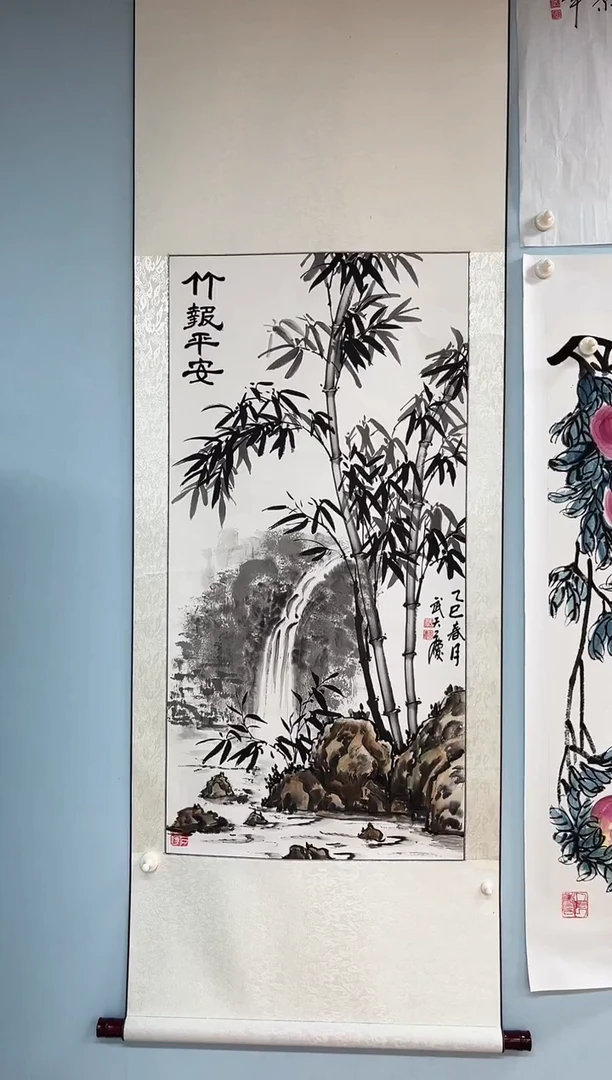 竹報平安
乙巳春月
武天慶